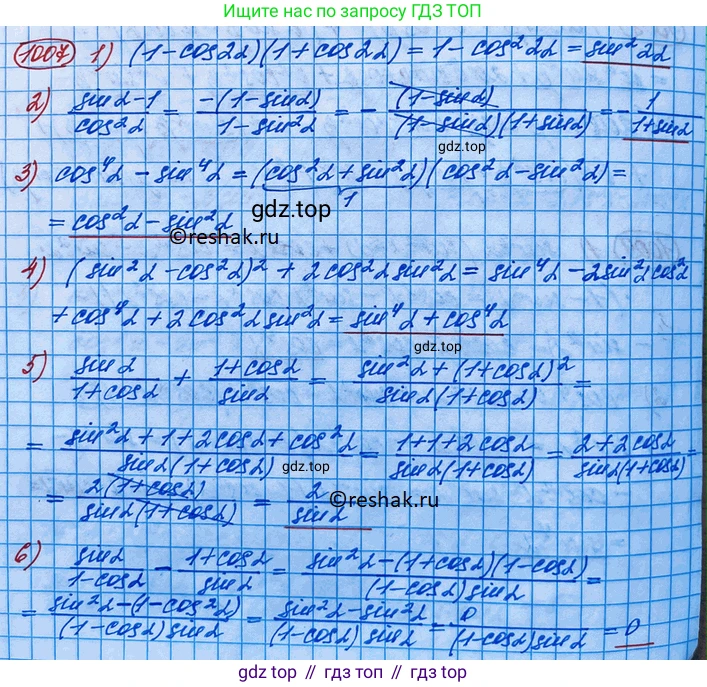 Ищите нас по запросу ГДЗ ТОП
1007 1) (1-cos2α)(1+cos2α) = 1-cos²2α = sin²2α
2) (sinα-1)/(cos²α) = (-(1-sinα))/(1-sin²α) = -(1-sinα)/((1-sinα)(1+sinα)) = -1/(1+sinα)
gdz.top
3) cos⁴α - sin⁴α = (cos²α + sin²α)(cos²α - sin²α) =
1
= cos²α - sin²α
gdz.top
©reshak.ru
4) (sin²α - cos²α)² + 2cos²α sin²α = sin⁴α - 2sin²α cos²α
+ cos⁴α + 2cos²α sin²α = sin⁴α + cos⁴α
gdz.top
5) sinα/(1+cosα) + (1+cosα)/sinα = (sin²α + (1+cosα)²)/(sinα(1+cosα)) =
= (sin²α + 1 + 2cosα + cos²α)/(sinα(1+cosα)) = (1+1+2cosα)/(sinα(1+cosα)) = (2+2cosα)/(sinα(1+cosα)) =
gdz.top
= (2(1+cosα))/(sinα(1+cosα)) = 2/sinα
©reshak.ru
6) sinα/(1-cosα) - (1+cosα)/sinα = (sin²α - (1+cosα)(1-cosα))/((1-cosα)sinα) =
= (sin²α - (1-cos²α))/((1-cosα)sinα) = (sin²α - sin²α)/((1-cosα)sinα) = 0/((1-cosα)sinα) = 0
gdz.top // гдз.топ // gdz.top // гдз.топ